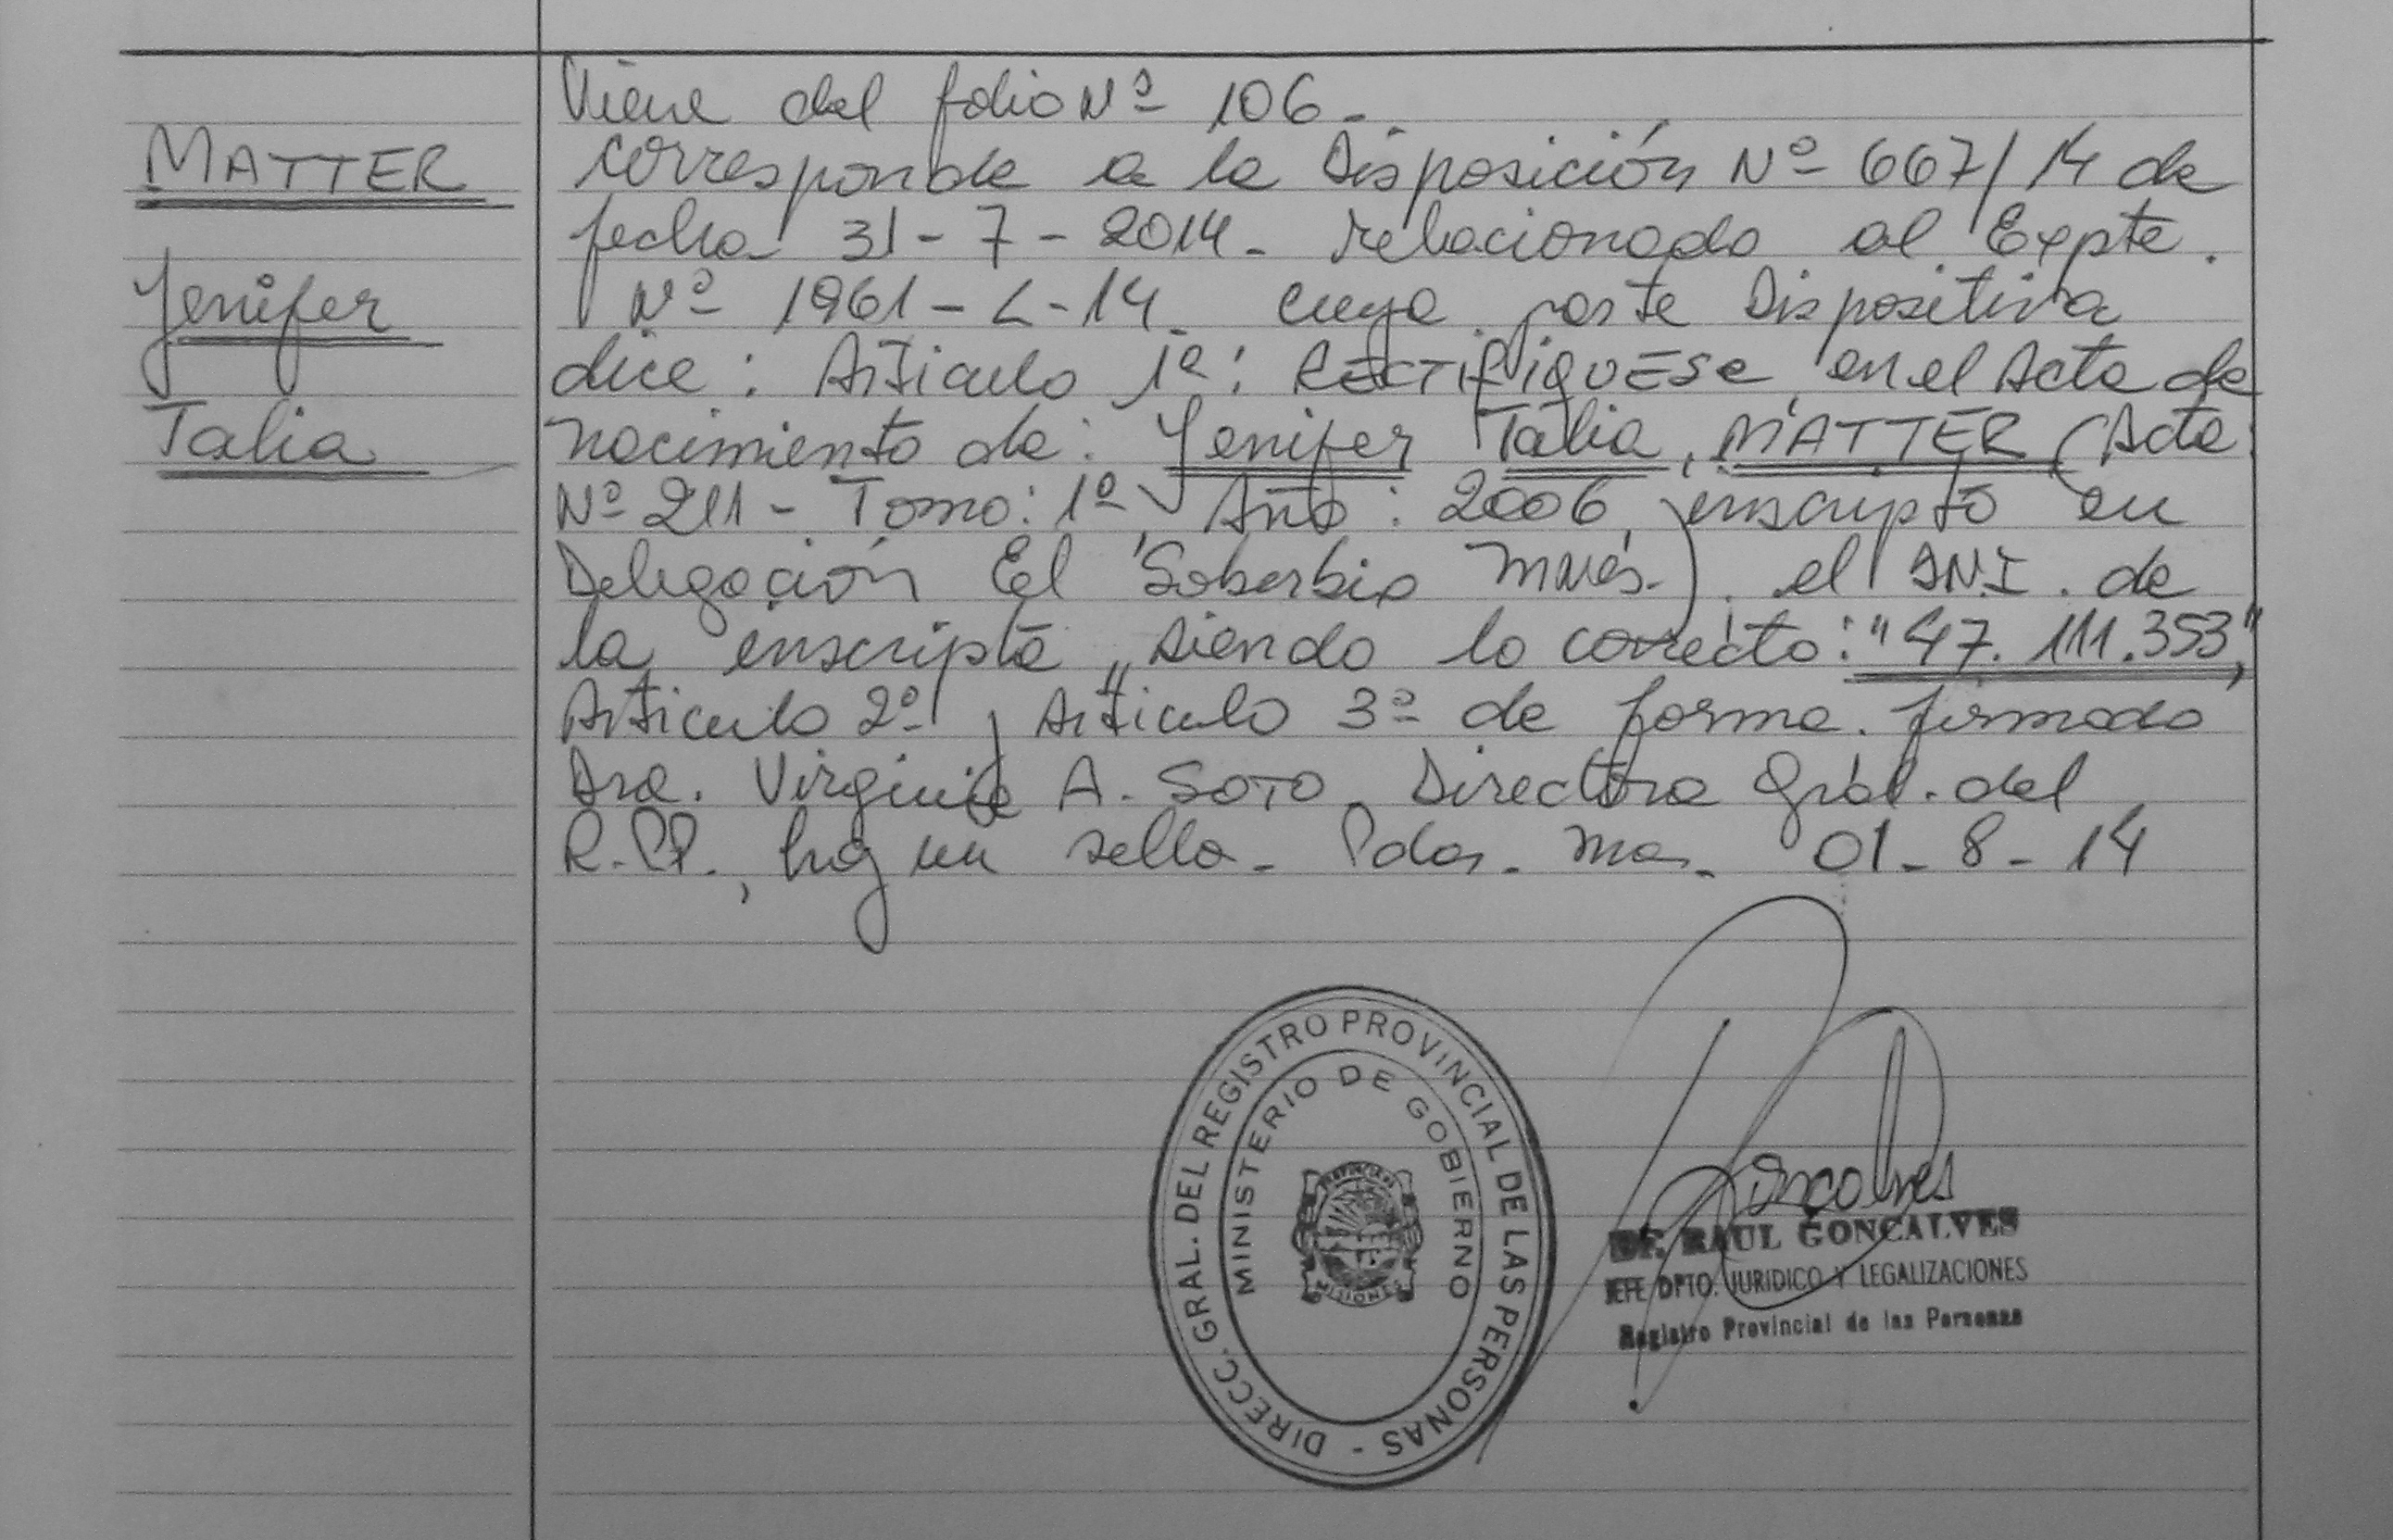 Viene del folio Nº 106.-
MATTER
Corresponde a la Disposición Nº 667/14 de
fecha 31-7-2014- relacionado al Expte.
Yenifer
Nº 1961-L-14. cuya parte Dispositiva
dice: Artículo 1º: RECTIFIQUESE en el Acta de
Talia
nacimiento de: Yenifer Talia, MATTER (Acta
Nº 211 - Tomo: 1º, Año: 2006, inscripto en
Delegación El Soberbio Mnes.) el D.N.I. de
la inscripta, siendo lo correcto: "47.111.353",
Artículo 2º y Artículo 3º de forma. firmado
Dra. Virginia A. SOTO Directora Gral. del
R.P.P., hay un sello- Pdas. Mnes. 01-8-14
DIRECC. GRAL. DEL REGISTRO PROVINCIAL DE LAS PERSONAS -
MINISTERIO DE GOBIERNO
MISIONES
Goncalves
Dr. RAUL GONCALVES
JEFE DPTO. JURIDICO Y LEGALIZACIONES
Registro Provincial de las Personas